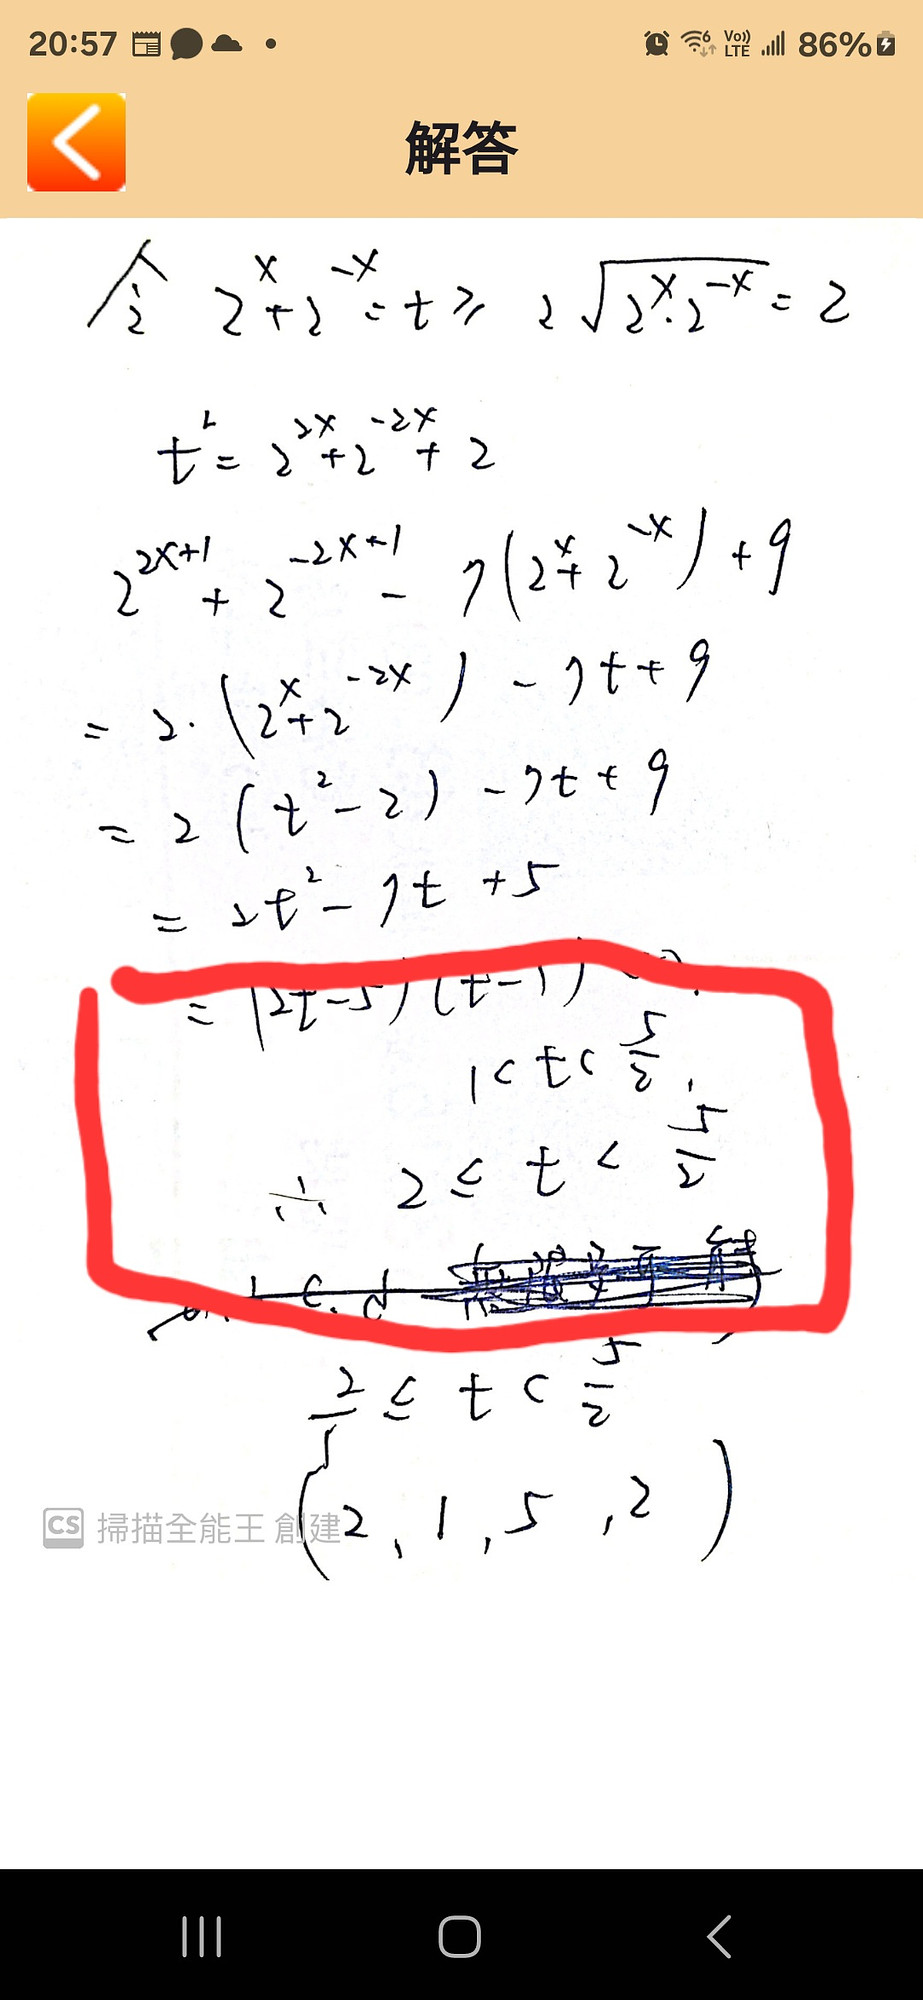 20:57 Vo)) LTE 86%
解答
令 2^x+2^-x = t ≥ 2√(2^x·2^-x) = 2
t² = 2^2x+2^-2x + 2
2^2x+1 + 2^-2x+1 - 7(2^x+2^-x) + 9
= 2·(2^x+2^-2x) - 7t + 9
= 2(t²-2) - 7t + 9
= 2t² - 7t + 5
= (2t-5)(t-1)
1 < t < 5/2.
∴ 2 ≤ t < 5/2
2/1 ≤ t < 5/2
(2, 1, 5, 2)
CS 掃描全能王 創建